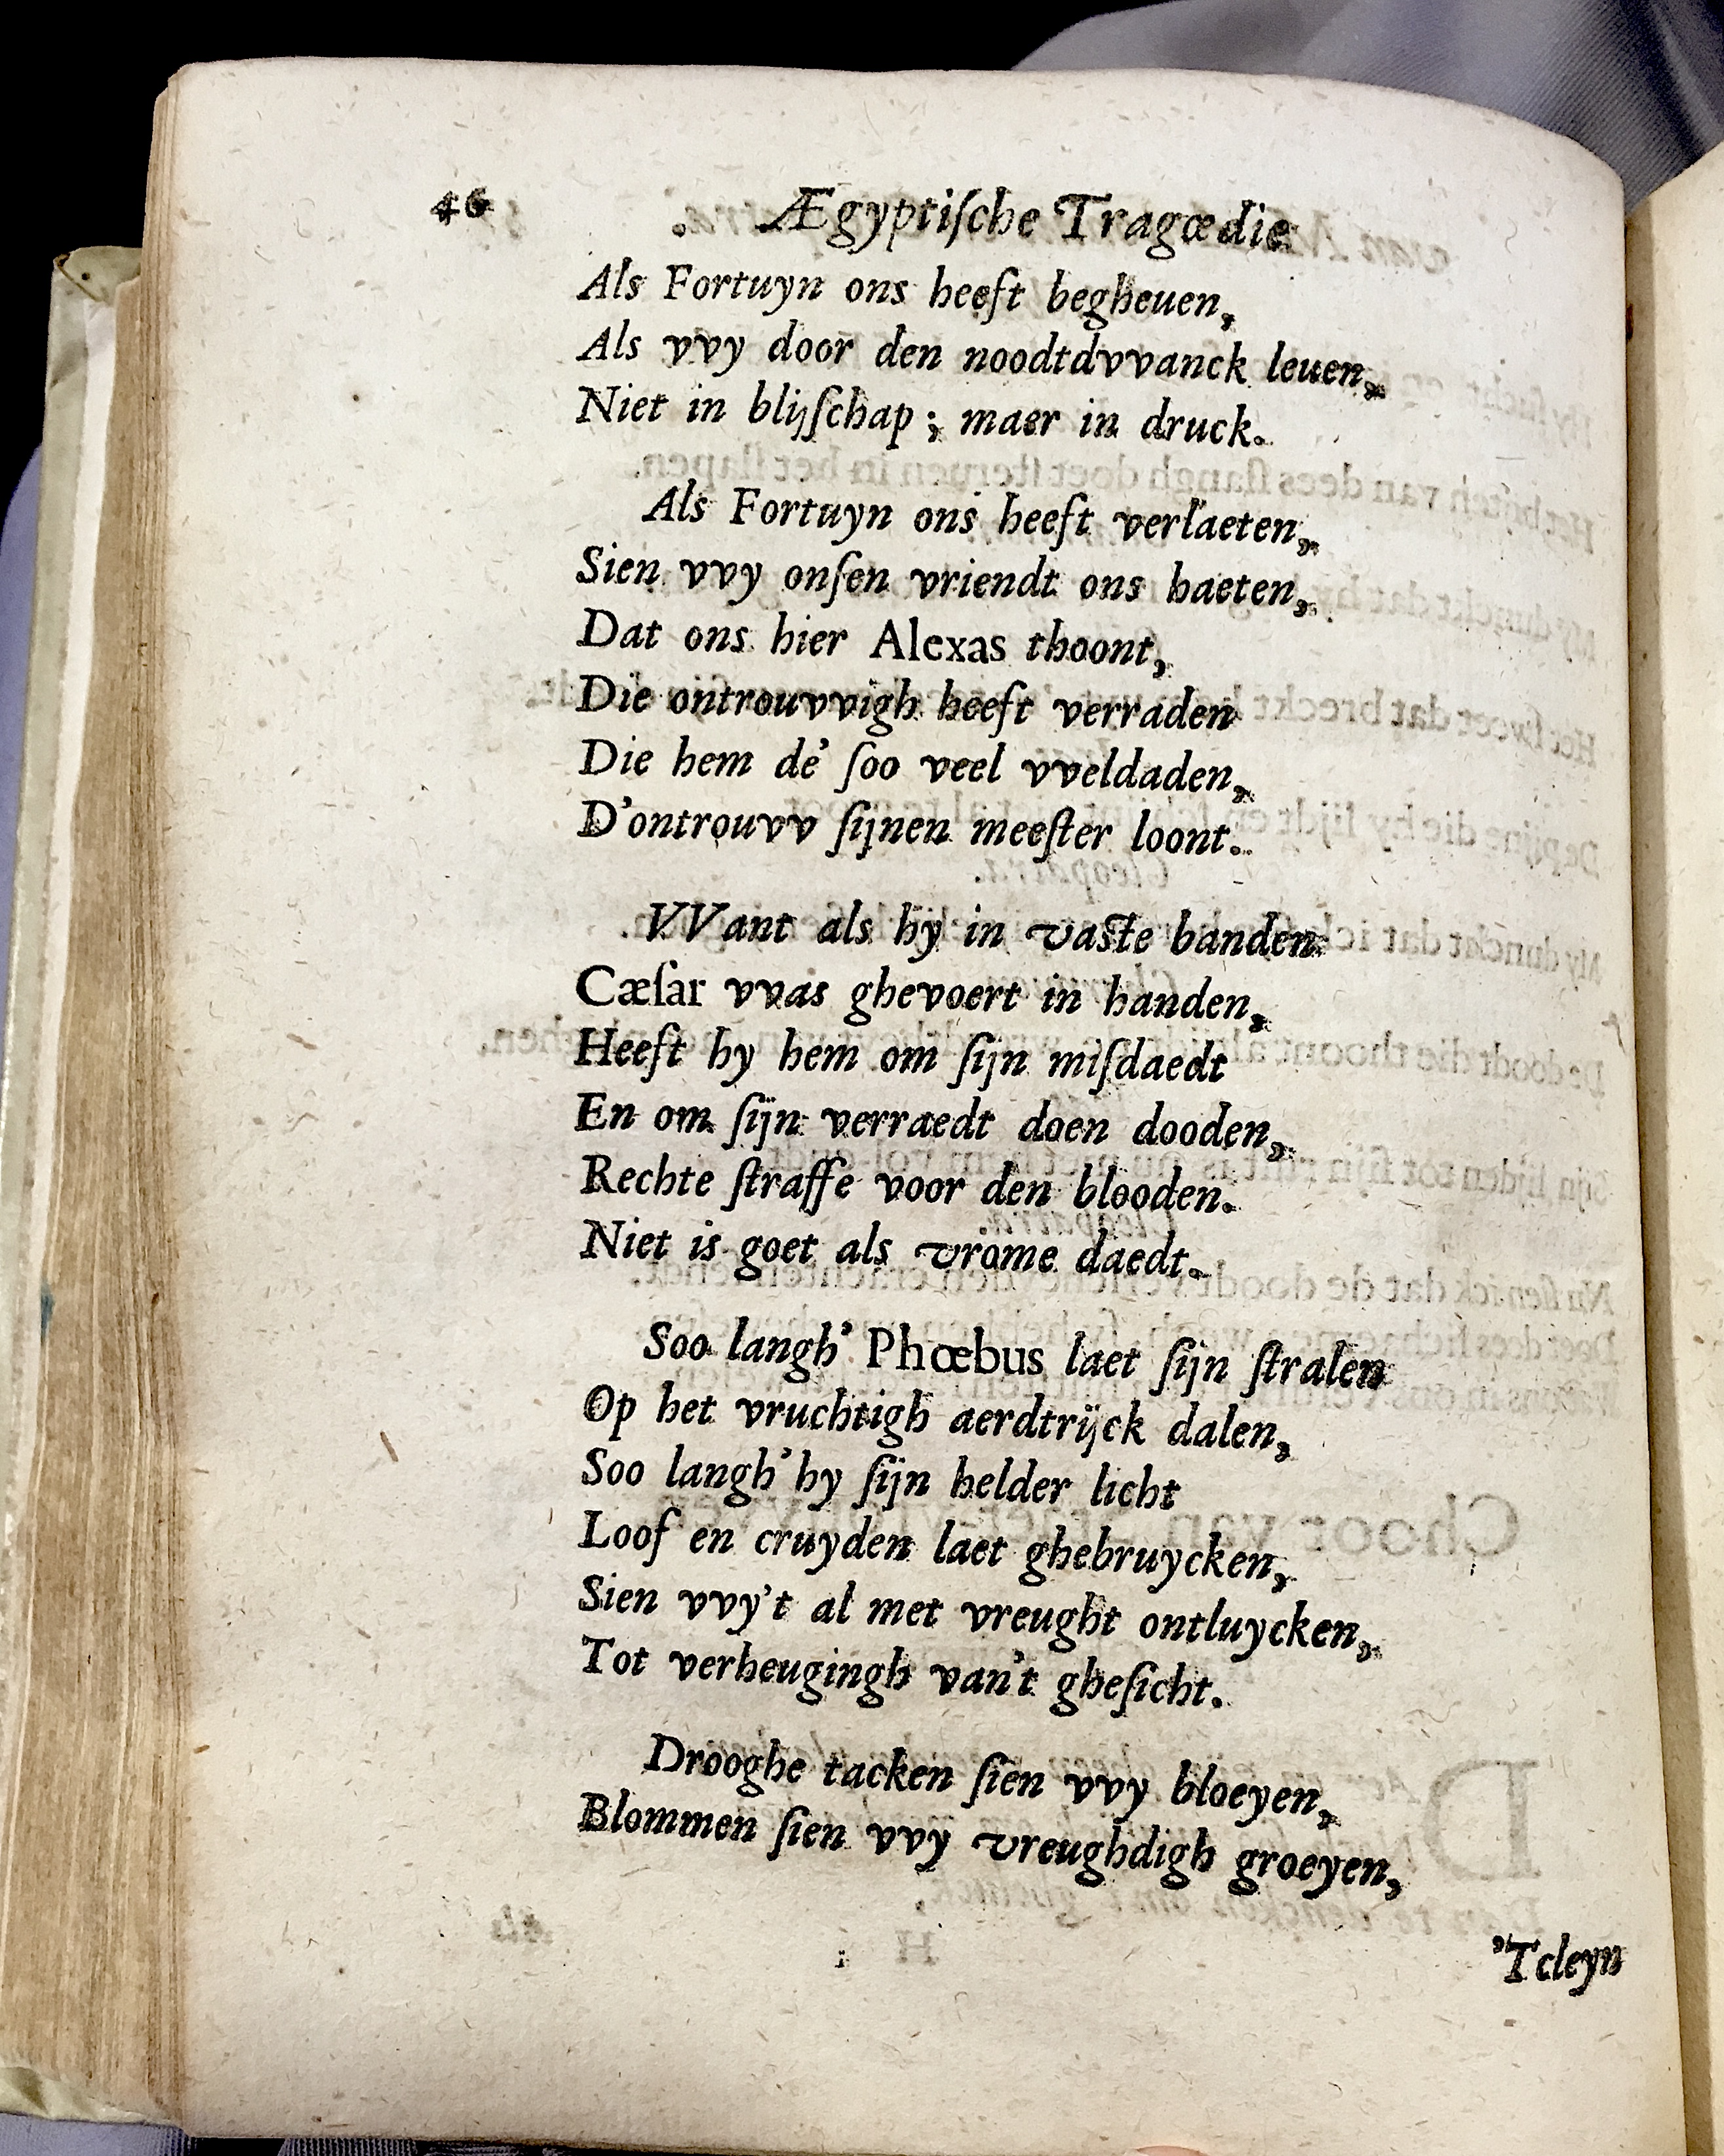 46 Ægyptiſche Tragœdie
Als Fortuyn ons heeft begheuen,
Als vvy door den noodtdvvanck leuen,
Niet in blijſchap; maer in druck.
Als Fortuyn ons heeft verlaeten,
Sien vvy onſen vriendt ons haeten,
Dat ons hier Alexas thoont,
Die ontrouvvigh heeft verraden
Die hem de' ſoo veel vveldaden,
D'ontrouvv ſijnen meeſter loont.
VVant als hy in vaſte banden
Cæſar vvas ghevoert in handen,
Heeft hy hem om ſijn miſdaedt
En om ſijn verraedt doen dooden,
Rechte ſtraffe voor den blooden.
Niet is goet als vrome daedt.
Soo langh' Phœbus laet ſijn ſtralen
Op het vruchtigh aerdtrijck dalen,
Soo langh' hy ſijn helder licht
Loof en cruyden laet ghebruycken,
Sien vvy't al met vreught ontluycken,
Tot verheugingh van't gheſicht.
Drooghe tacken ſien vvy bloeyen,
Blommen ſien vvy vreughdigh groeyen,
'Tcleyn